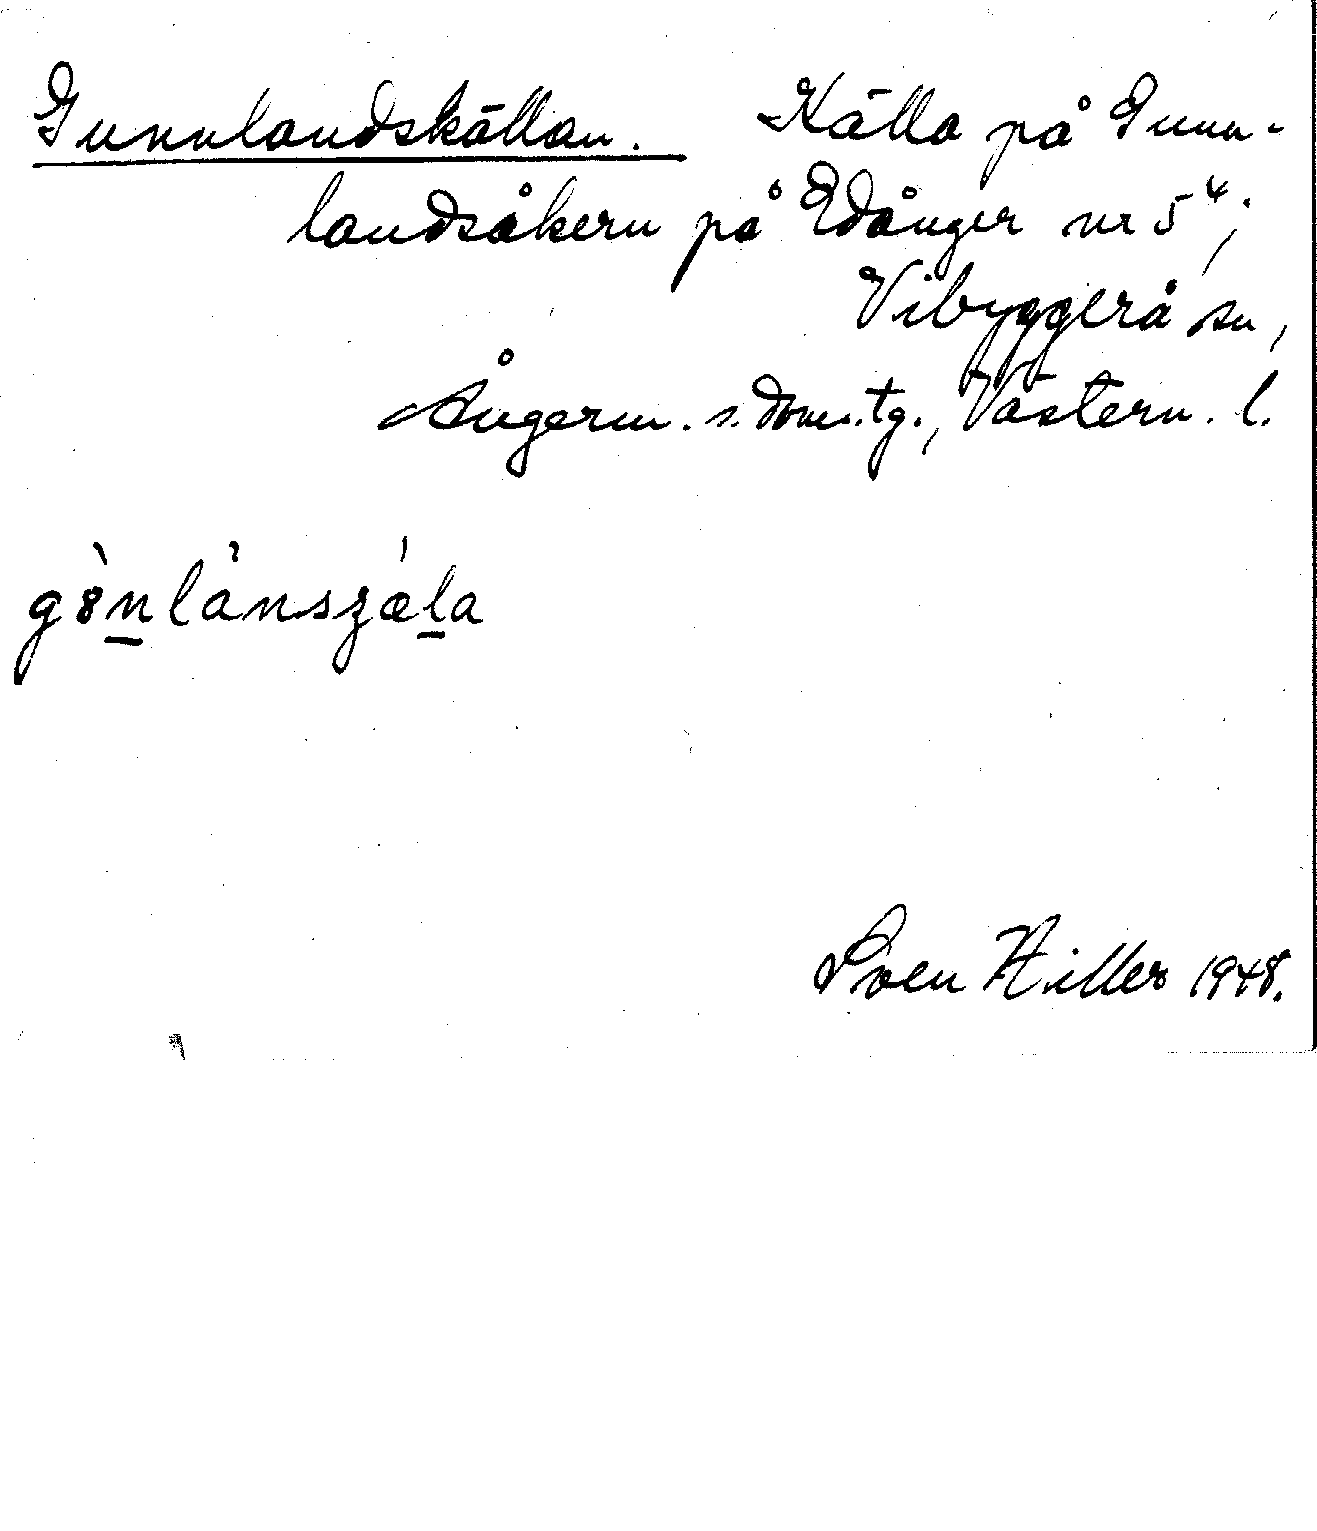 Gunnlandskällan. Källa på Gunn-
landsåkern på Edånger nr 5⁴;
Vibyggerå sn,
Ångerm. s. doms.tg., Västern. l.
Sven Hiller 1948.